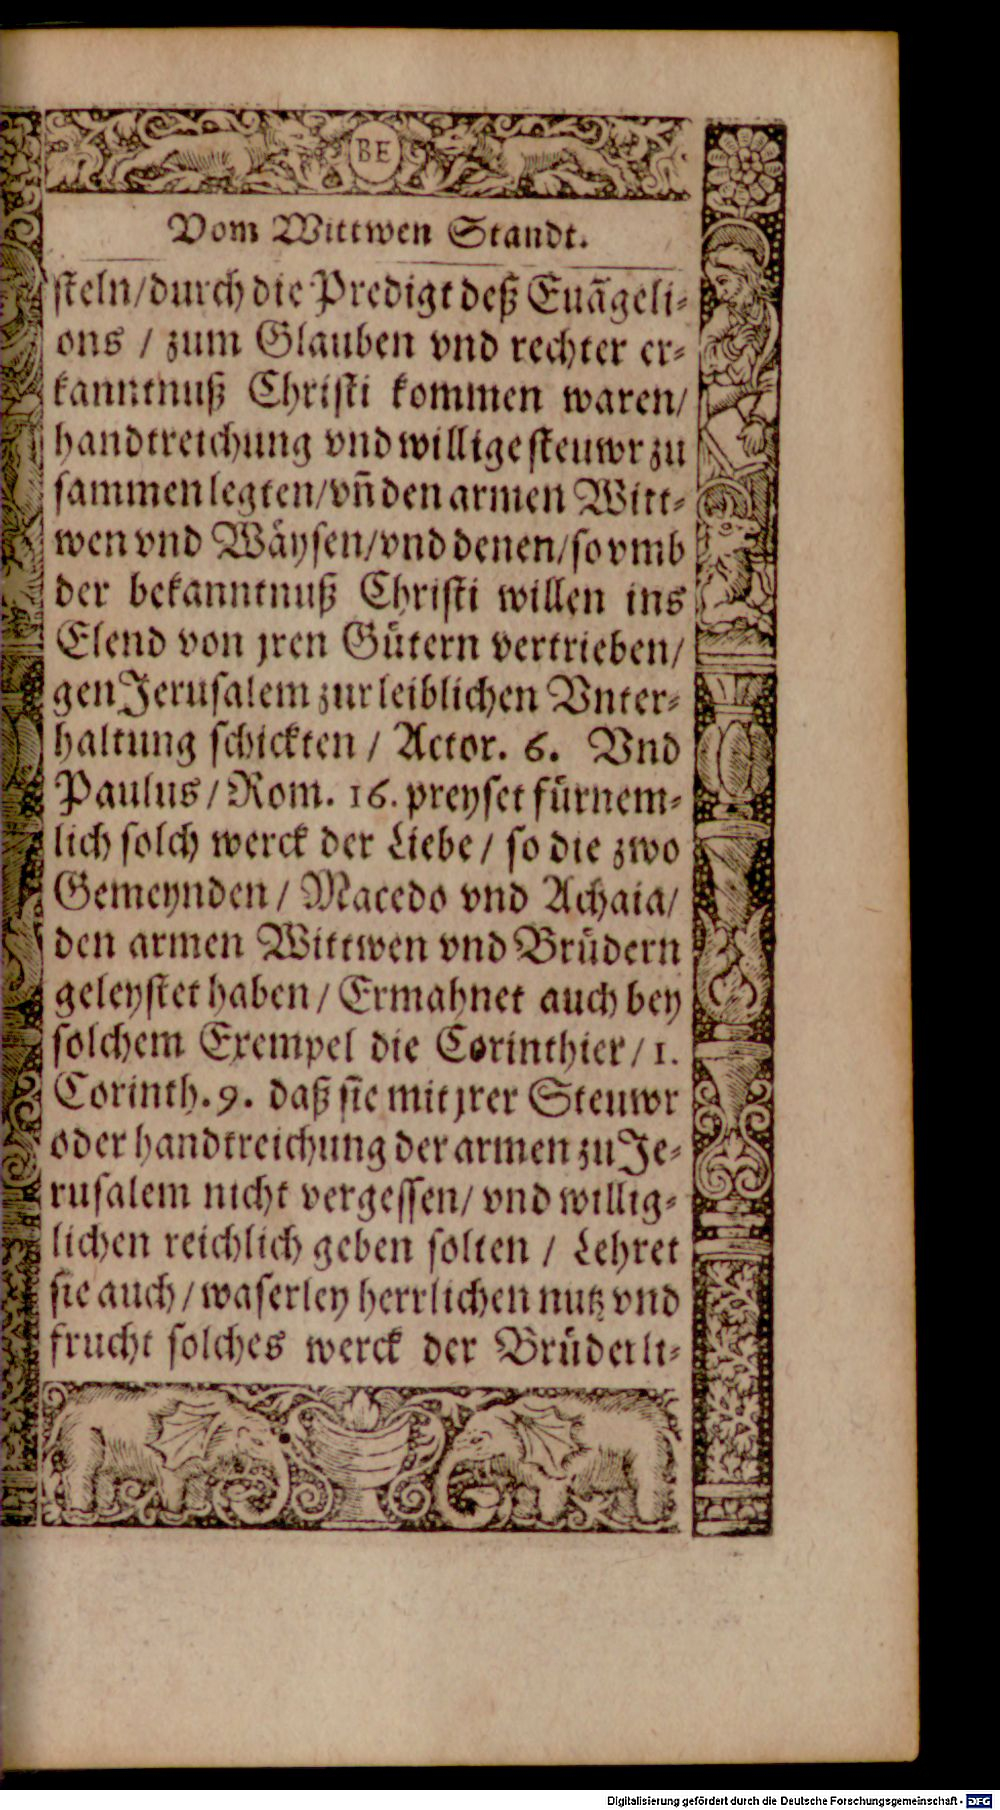 BE
Vom Wittwen Standt.
ſteln/durch die Predigt deß Euãgeli-
ons / zum Glauben vnd rechter er-
kanntnuß Chriſti kommen waren/
handtreichung vnd willige ſteuwr zu
ſammen legten/vñ den armen Witt-
wen vnd Wäyſen/vnd denen/ſo vmb
der bekanntnuß Chriſti willen ins
Elend von jren Gütern vertrieben/
gen Jeruſalem zur leiblichen Vnter-
haltung ſchickten / Actor. 6. Vnd
Paulus / Rom. 16. preyſet fürnem-
lich ſolch werck der Liebe / ſo die zwo
Gemeynden / Macedo vnd Achaia/
den armen Wittwen vnd Brüdern
geleyſtet haben / Ermahnet auch bey
ſolchem Exempel die Corinthier / 1.
Corinth. 9. daß ſie mit jrer Steuwr
oder handtreichung der armen zu Je-
ruſalem nicht vergeſſen/ vnd willig-
lichen reichlich geben ſolten / Lehret
ſie auch / waſerley herrlichen nutz vnd
frucht ſolches werck der Brüderli-
Digitalisierung gefördert durch die Deutsche Forschungsgemeinschaft - DFG